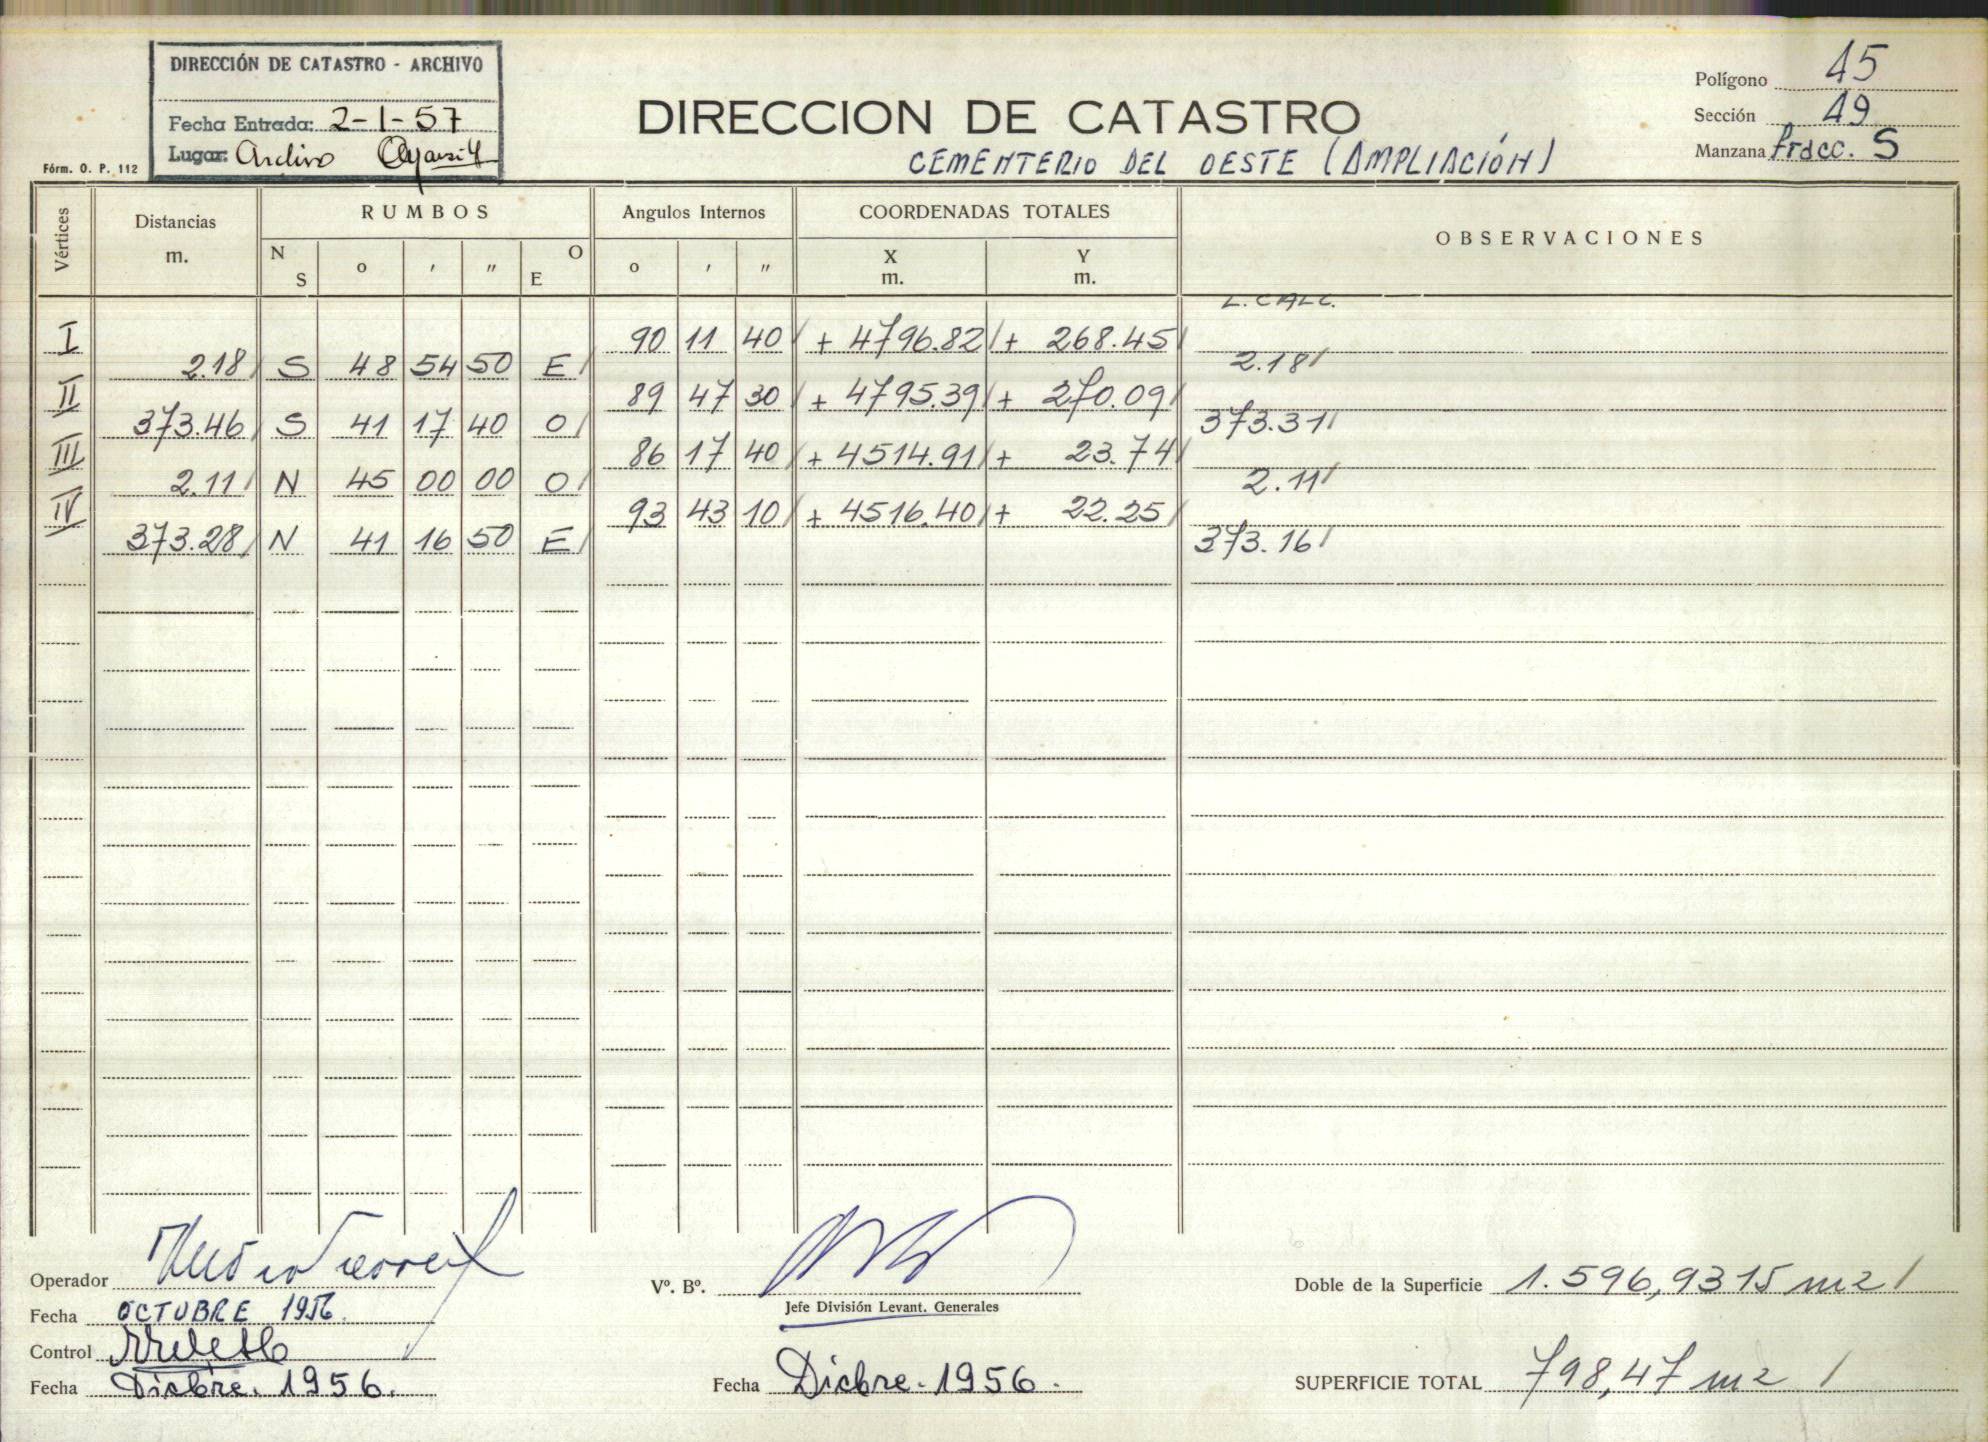 DIRECCIÓN DE CATASTRO - ARCHIVO
Fecha Entrada: 2-1-57
Lugar: Archivo
Fórm. O. P. 112
DIRECCION DE CATASTRO
CEMENTERIO DEL OESTE (AMPLIACIÓN)
Polígono 45
Sección 49
Manzana Fracc. S
Vértices Distancias m. RUMBOS N S o ' " O E Angulos Internos o ' " COORDENADAS TOTALES X m. Y m. OBSERVACIONES
L. CALC.
I 90 11 40 + 4796.82 + 268.45
2.18 S 48 54 50 E 2.18
II 89 47 30 + 4795.39 + 270.09
373.46 S 41 17 40 O 373.31
III 86 17 40 + 4514.91 + 23.74
2.11 N 45 00 00 O 2.11
IV 93 43 10 + 4516.40 + 22.25
373.28 N 41 16 50 E 373.16
Operador
Fecha OCTUBRE 1956.
Control
Fecha Dicbre. 1956.
Vº. Bº.
Jefe División Levant. Generales
Fecha Dicbre. 1956.
Doble de la Superficie 1.596,9315 m2
SUPERFICIE TOTAL 798,47 m2